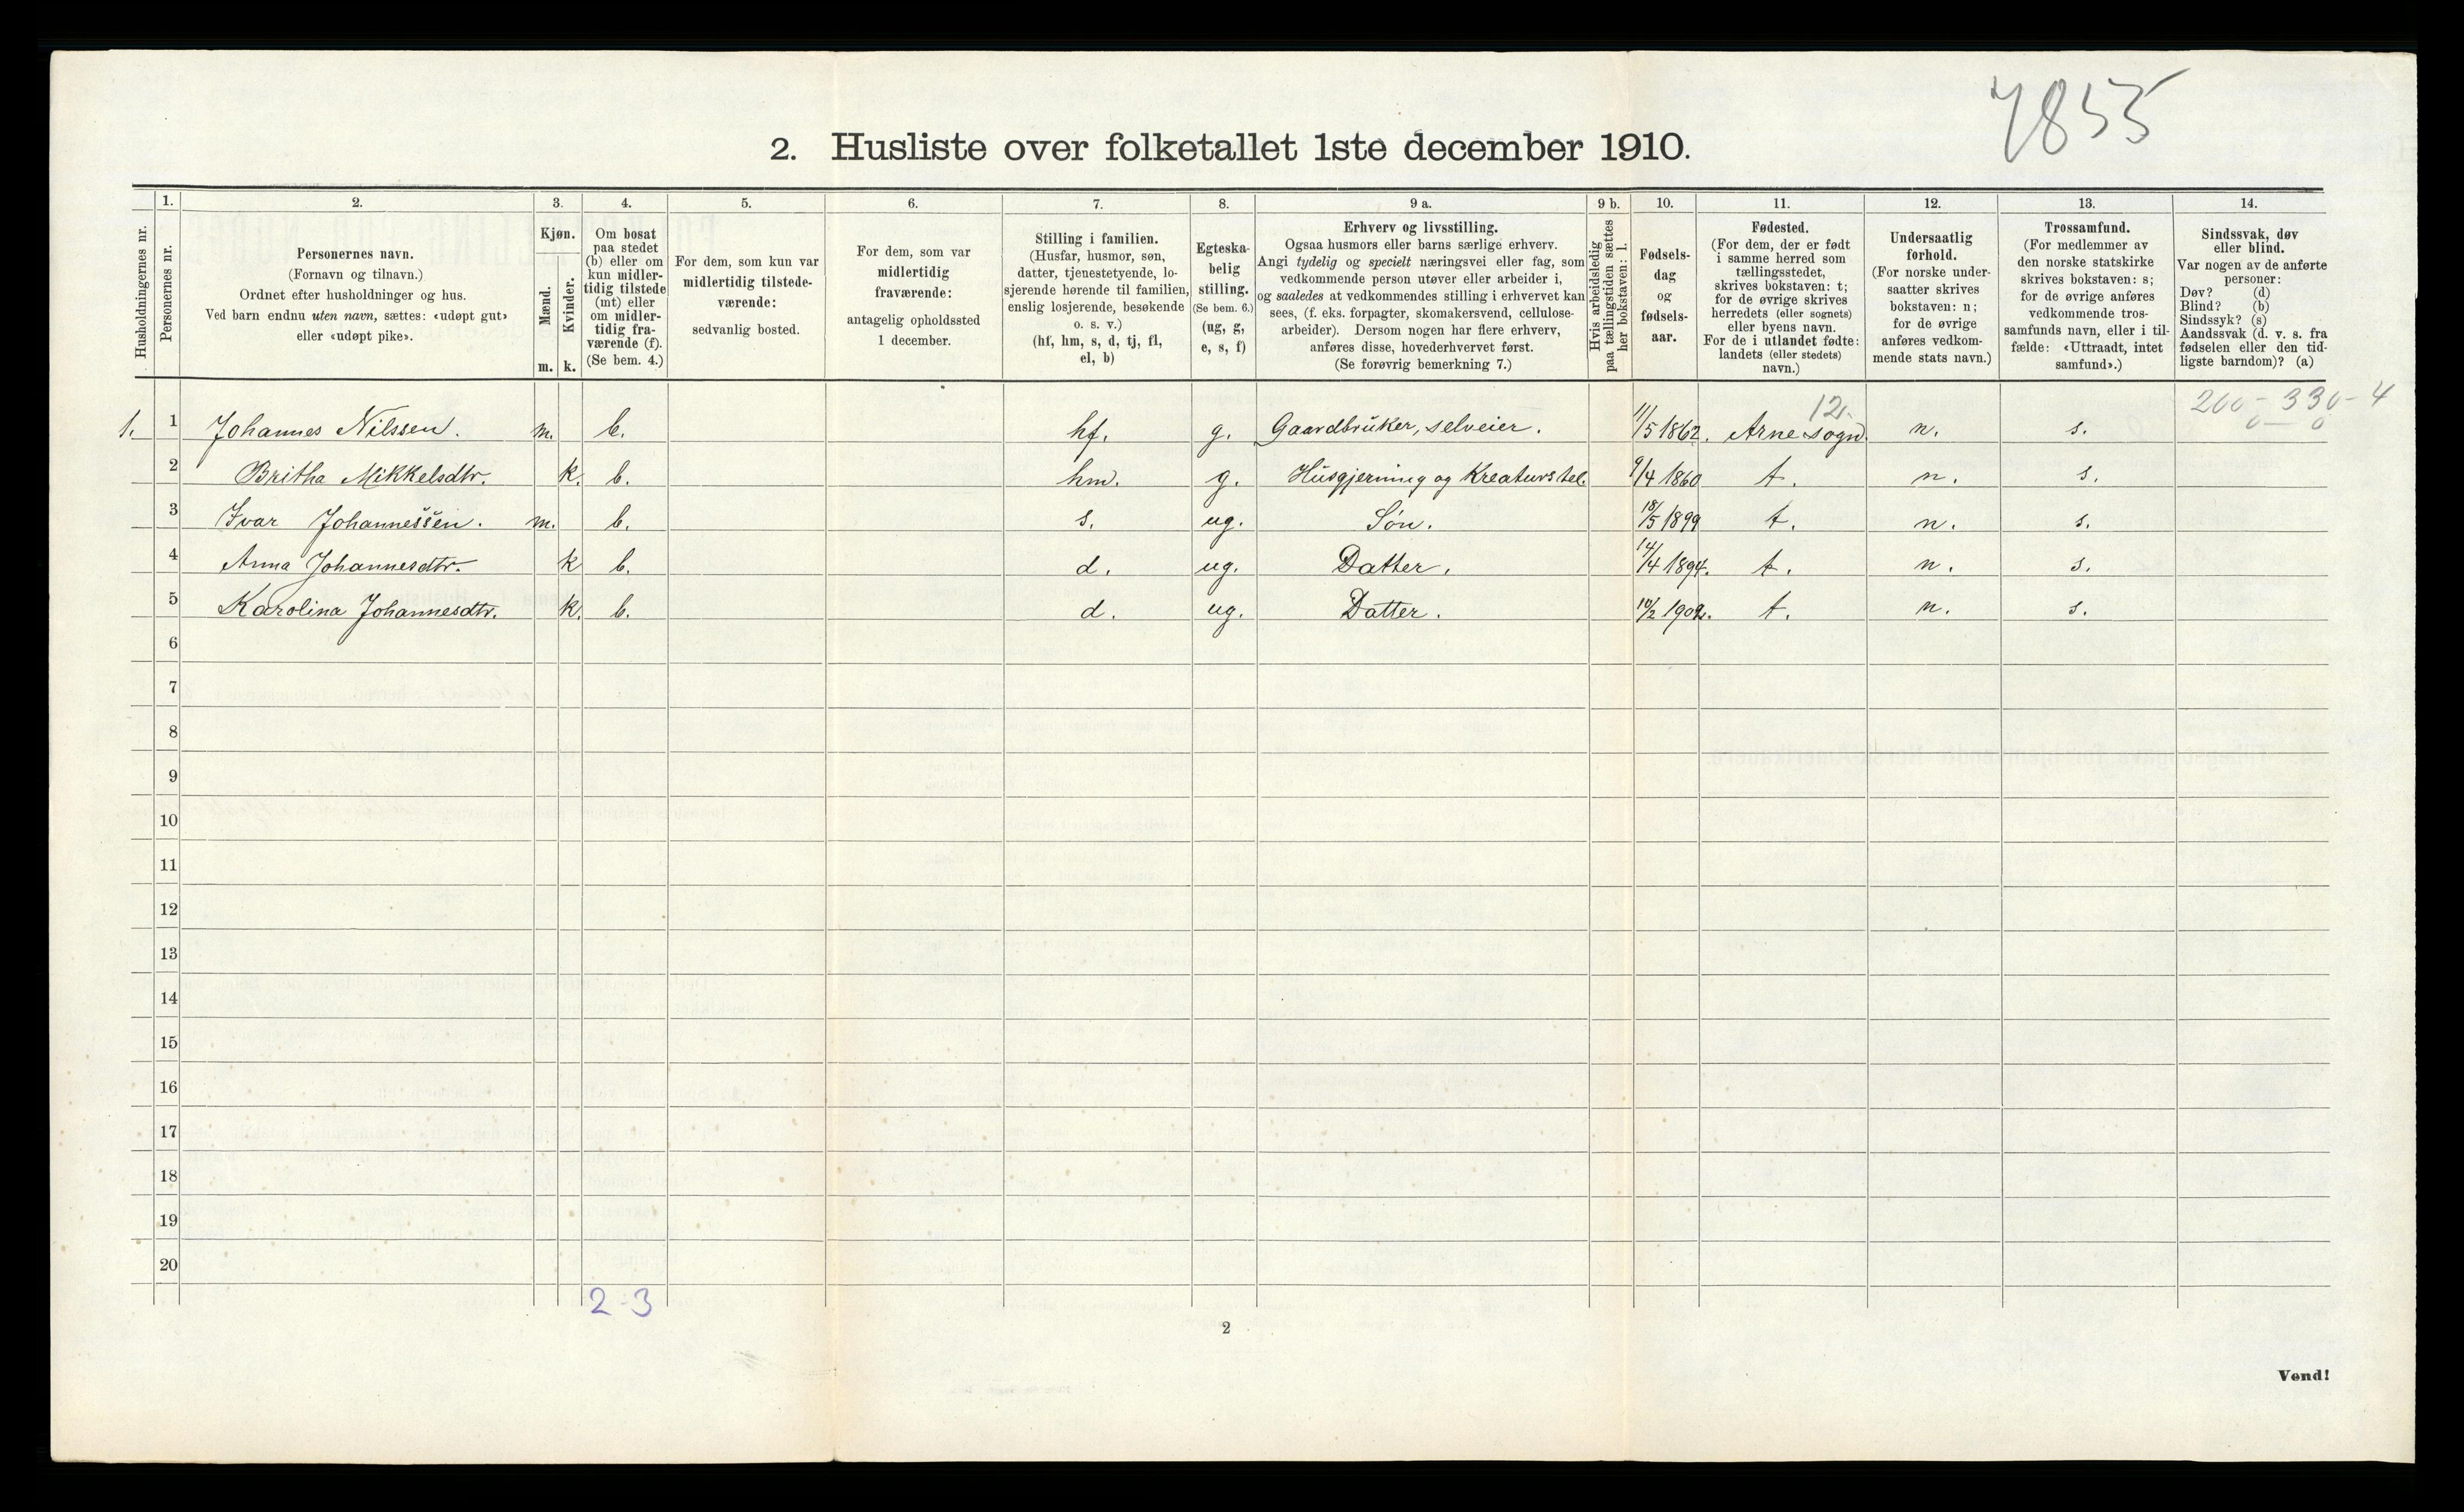 7855
2. Husliste over folketallet 1ste december 1910.
Husholdningernes nr.
1.
Personernes nr.
2.
Personernes navn.
(Fornavn og tilnavn.)
Ordnet efter husholdninger og hus.
Ved barn endnu uten navn, sættes: «udøpt gut»
eller «udøpt pike».
3.
Kjøn.
Mænd.
Kvinder.
m. k.
4.
Om bosat
paa stedet
(b) eller om
kun midler-
tidig tilstede
(mt) eller
om midler-
tidig fra-
værende (f).
(Se bem. 4.)
5.
For dem, som kun var
midlertidig tilstede-
værende:
sedvanlig bosted.
6.
For dem, som var
midlertidig
fraværende:
antagelig opholdssted
1 december.
7.
Stilling i familien.
(Husfar, husmor, søn,
datter, tjenestetyende, lo-
sjerende hørende til familien,
enslig losjerende, besøkende
o. s. v.)
(hf, hm, s, d, tj, fl,
el, b)
8.
Egteska-
belig
stilling.
(Se bem. 6.)
(ug, g,
e, s, f)
9 a.
Erhverv og livsstilling.
Ogsaa husmors eller barns særlige erhverv.
Angi tydelig og specielt næringsvei eller fag, som
vedkommende person utøver eller arbeider i,
og saaledes at vedkommendes stilling i erhvervet kan
sees, (f. eks. forpagter, skomakersvend, cellulose-
arbeider). Dersom nogen har flere erhverv,
anføres disse, hovederhvervet først.
(Se forøvrig bemerkning 7.)
9 b.
Hvis arbeidsledig
paa tællingstiden sættes
her bokstaven: l.
10.
Fødsels-
dag
og
fødsels-
aar.
11.
Fødested.
(For dem, der er født
i samme herred som
tællingsstedet,
skrives bokstaven: t;
for de øvrige skrives
herredets (eller sognets)
eller byens navn.
For de i utlandet fødte:
landets (eller stedets)
navn.)
12.
Undersaatlig
forhold.
(For norske under-
saatter skrives
bokstaven: n;
for de øvrige
anføres vedkom-
mende stats navn.)
13.
Trossamfund.
(For medlemmer av
den norske statskirke
skrives bokstaven: s;
for de øvrige anføres
vedkommende tros-
samfunds navn, eller i til-
fælde: «Uttraadt, intet
samfund».)
14.
Sindssvak, døv
eller blind.
Var nogen av de anførte
personer:
Døv? (d)
Blind? (b)
Sindssyk? (s)
Aandssvak (d. v. s. fra
fødselen eller den tid-
ligste barndom)? (a)
12. 200 - 330 - 4
0 — 0
1. 1 Johannes Nilssen. m. b. hf. g. Gaardbruker, selveier. 11/5 1862. Arne sogn. n. s.
2 Britha Mikkelsdtr. k. b. hm. g. Husgjerning og Kreaturstel. 9/4 1860 t. n. s.
3 Ivar Johannessen. m. b. s. ug. Søn. 18/5 1899 t. n. s.
4 Anna Johannesdtr. k b. d. ug. Datter. 14/4 1894. t. n. s.
5 Karolina Johannesdtr. k. b. d. ug. Datter. 10/2 1902. t. n. s.
6
7
8
9
10
11
12
13
14
15
16
17
18
19
20
2-3
2
Vend!